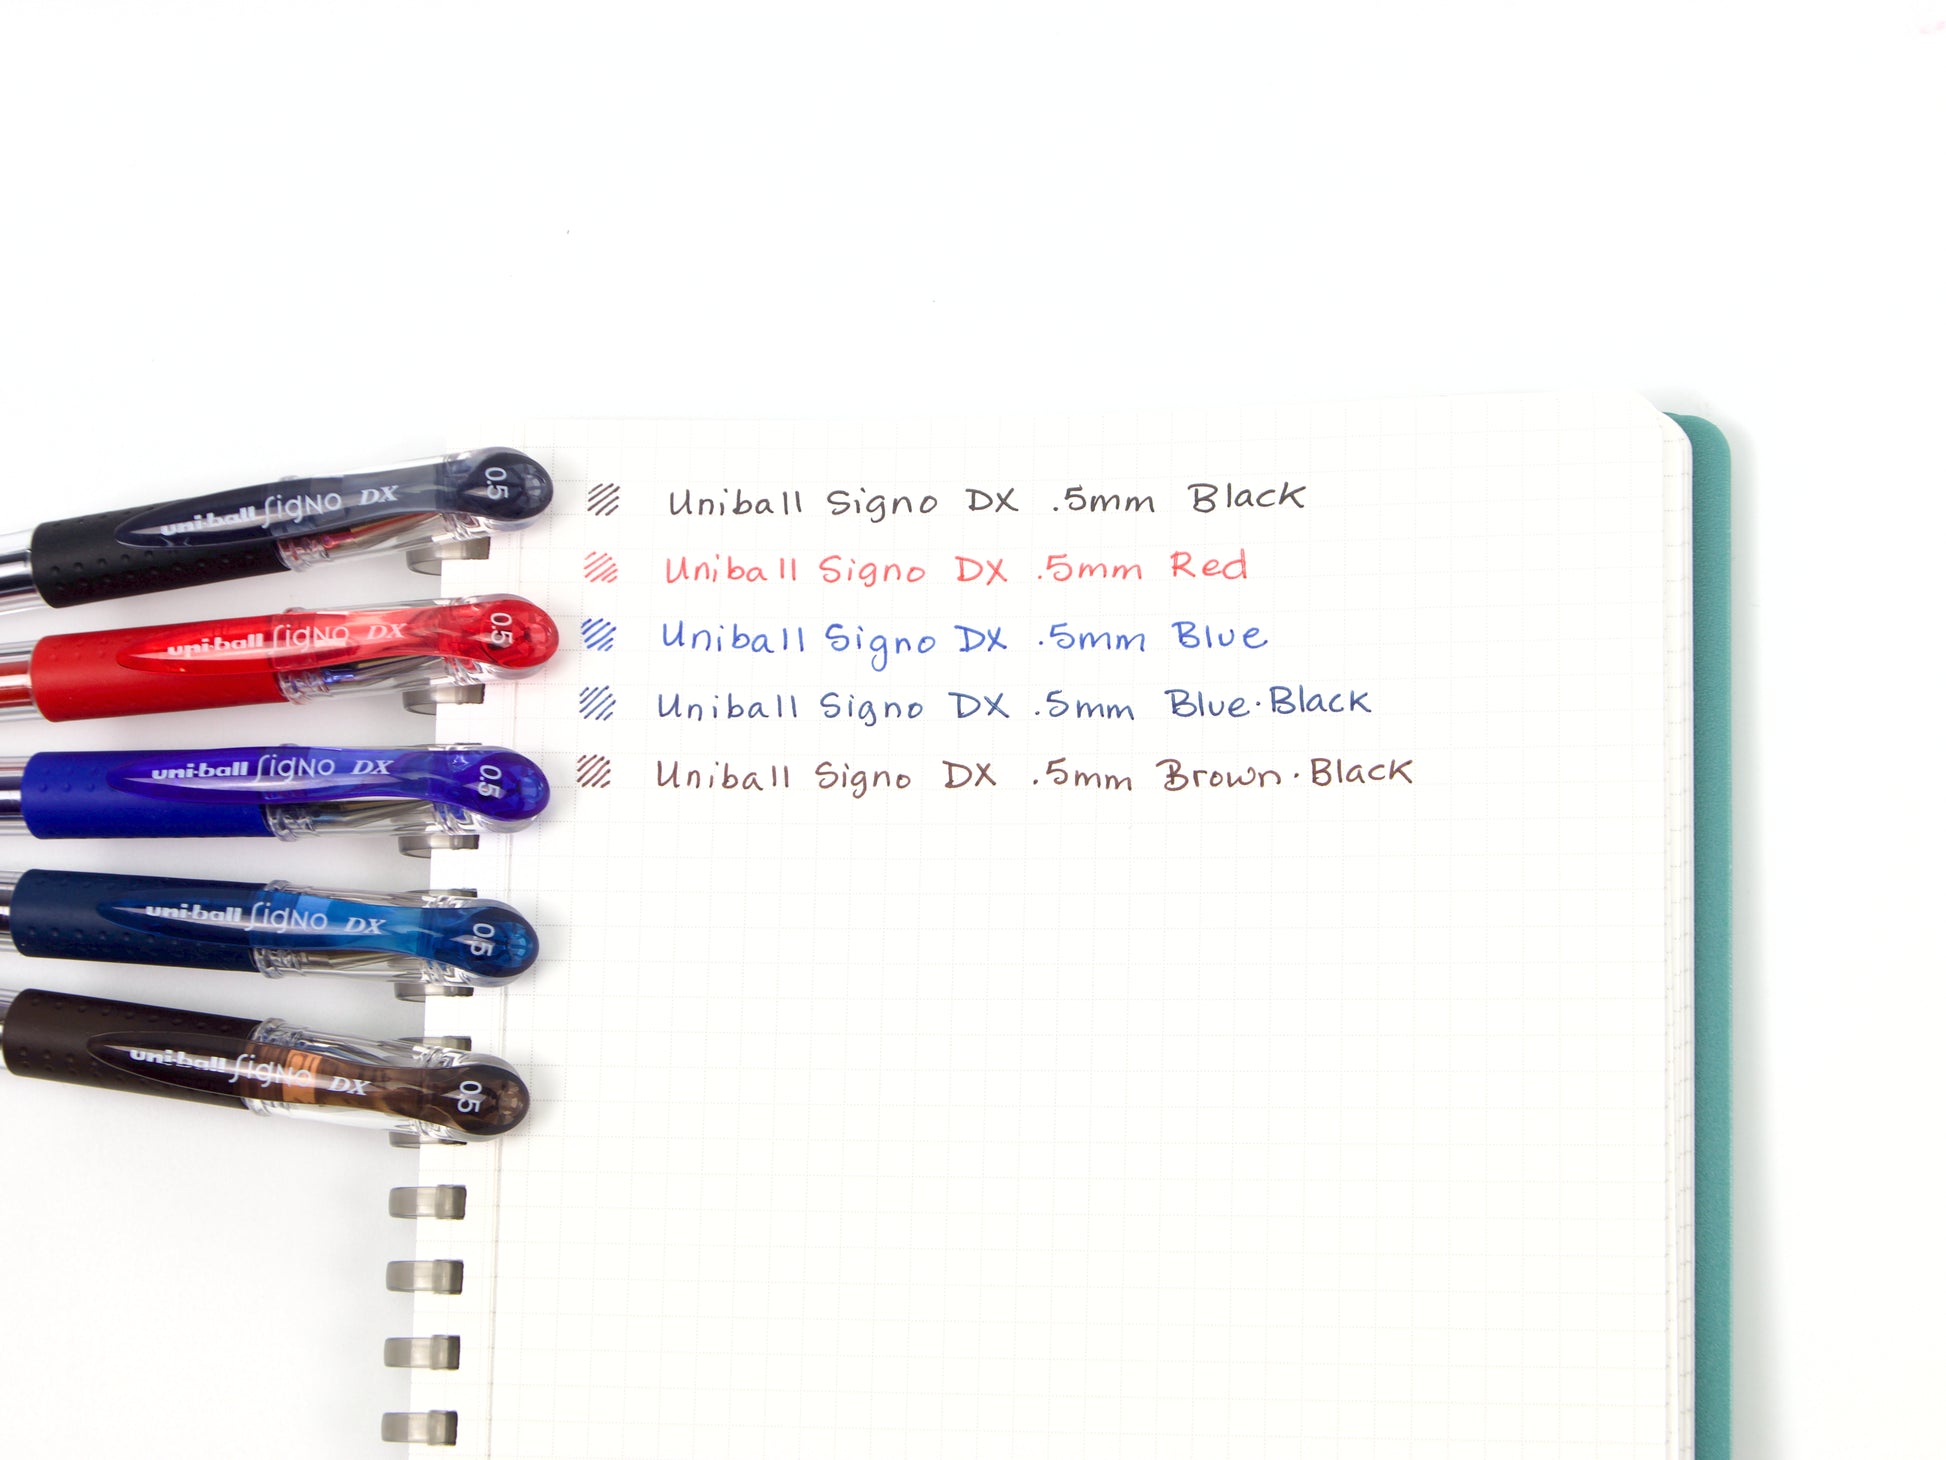 uni-ball Signo DX 0.5
uni-ball Signo DX 0.5
uni-ball Signo DX 0.5
uni-ball Signo DX 0.5
uni-ball Signo DX 0.5
Uniball Signo DX .5mm Black
Uniball Signo DX .5mm Red
Uniball Signo DX .5mm Blue
Uniball Signo DX .5mm Blue·Black
Uniball Signo DX .5mm Brown·Black